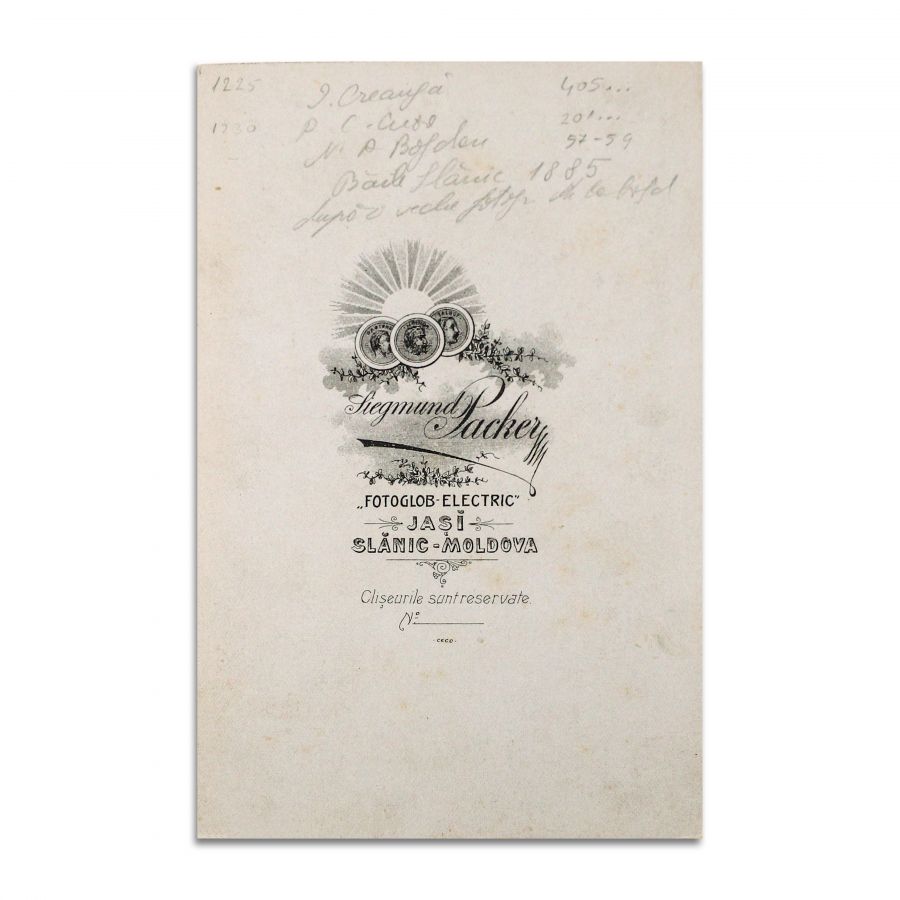 1225 I. Creangă 405...
1230 A. C. Cuza 201...
N. A. Bogdan 57-59
Băile Slănic 1885
după o veche fotogr.
Siegmund Packer
„FOTOGLOB-ELECTRIC"
JAȘĬ
SLĂNIC-MOLDOVA
Clișeurile sunt reservate.
Nº